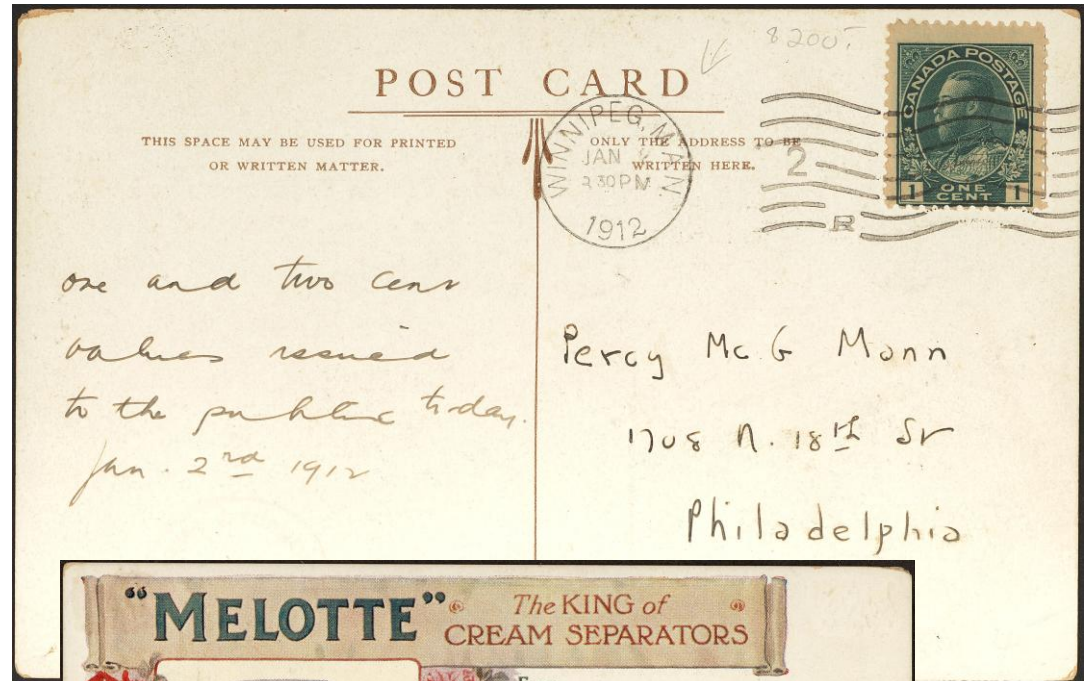 8200.
POST CARD
THIS SPACE MAY BE USED FOR PRINTED
OR WRITTEN MATTER.
ONLY THE ADDRESS TO BE
WRITTEN HERE.
WINNIPEG, MAN.
JAN
2 30 PM
1912
2
R
CANADA POSTAGE
1 ONE CENT 1
one and two cent
values issued
to the public to-day.
Jan. 2nd 1912
Percy Mc G Mann
1708 N. 18th St
Philadelphia
"MELOTTE" The KING of
CREAM SEPARATORS